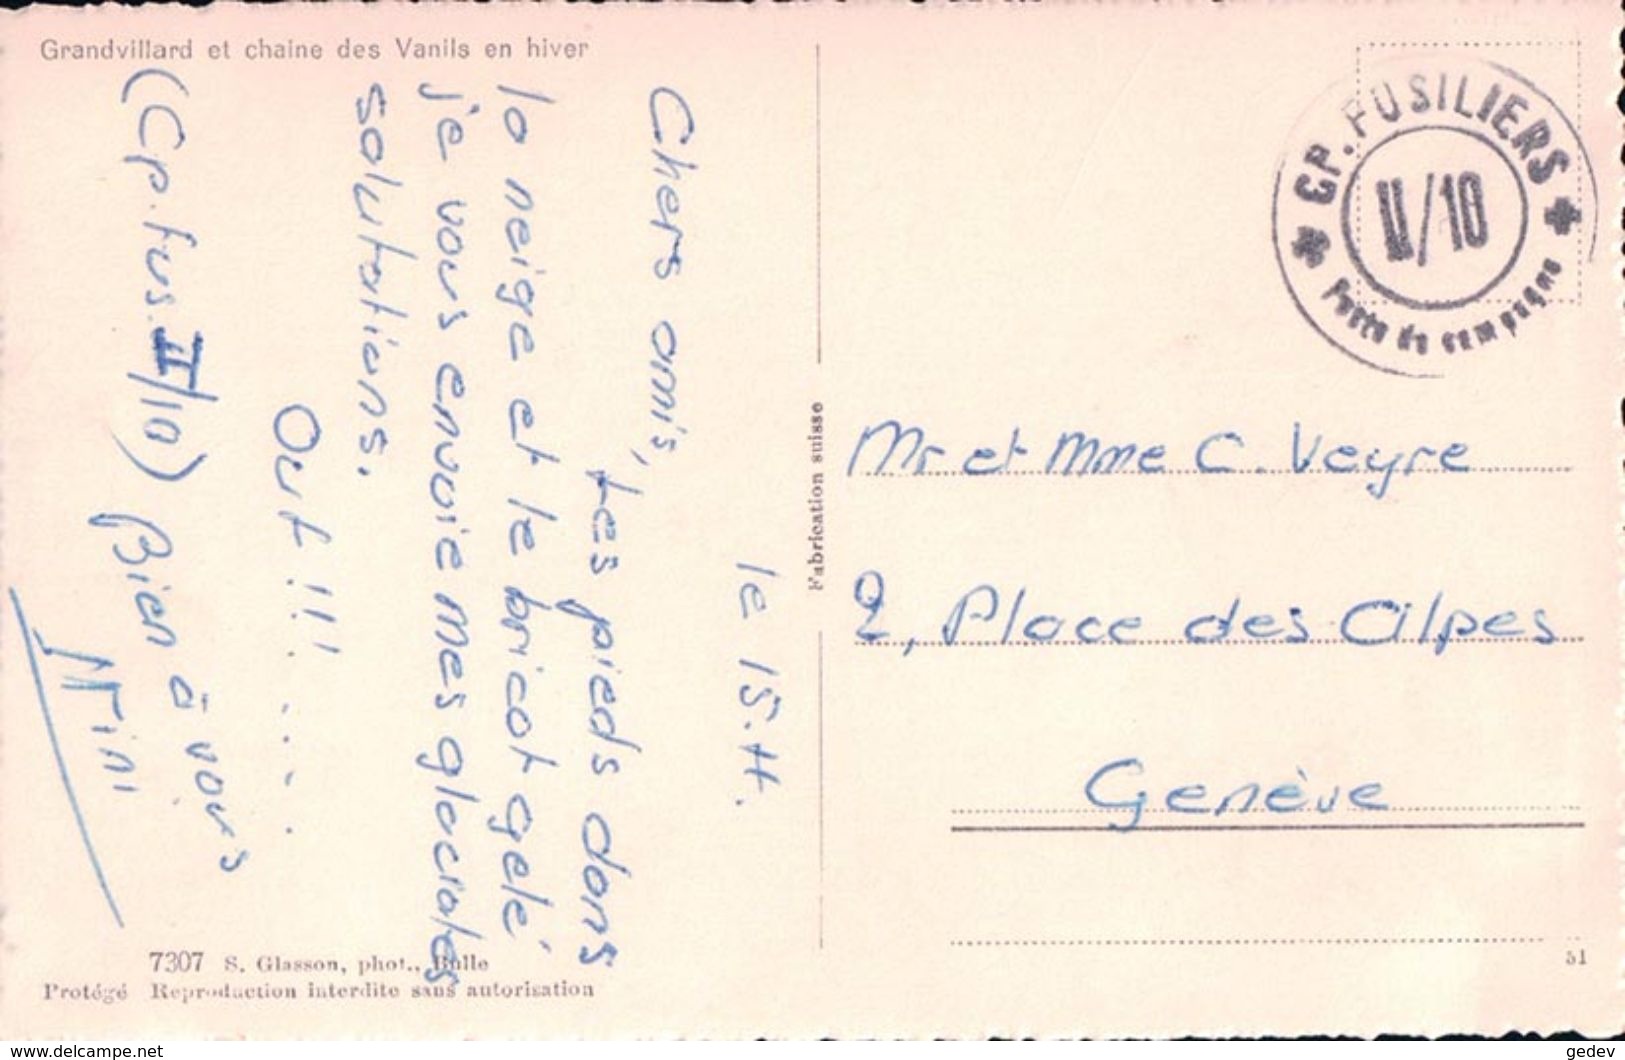 Grandvillard et chaine des Vanils en hiver
le 15.H.
Chers amis,
Les pieds dans
la neige et le bricot gelé
je vous envoie mes glaciales
salutations.
Ouf !!! . . . .
(Cp. fus. II/10) Bien à vous
Mini
7307 S. Glasson, phot., Bulle
Protégé Reproduction interdite sans autorisation
Fabrication suisse
CP. FUSILIERS
II/10
Poste de campagne
Mr et Mme C. Veyre
2, Place des Alpes
Genève
51
www.delcampe.net
gedev